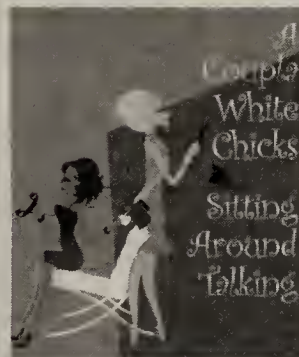 A
Couple
White
Chicks
Sitting
Around
Talking